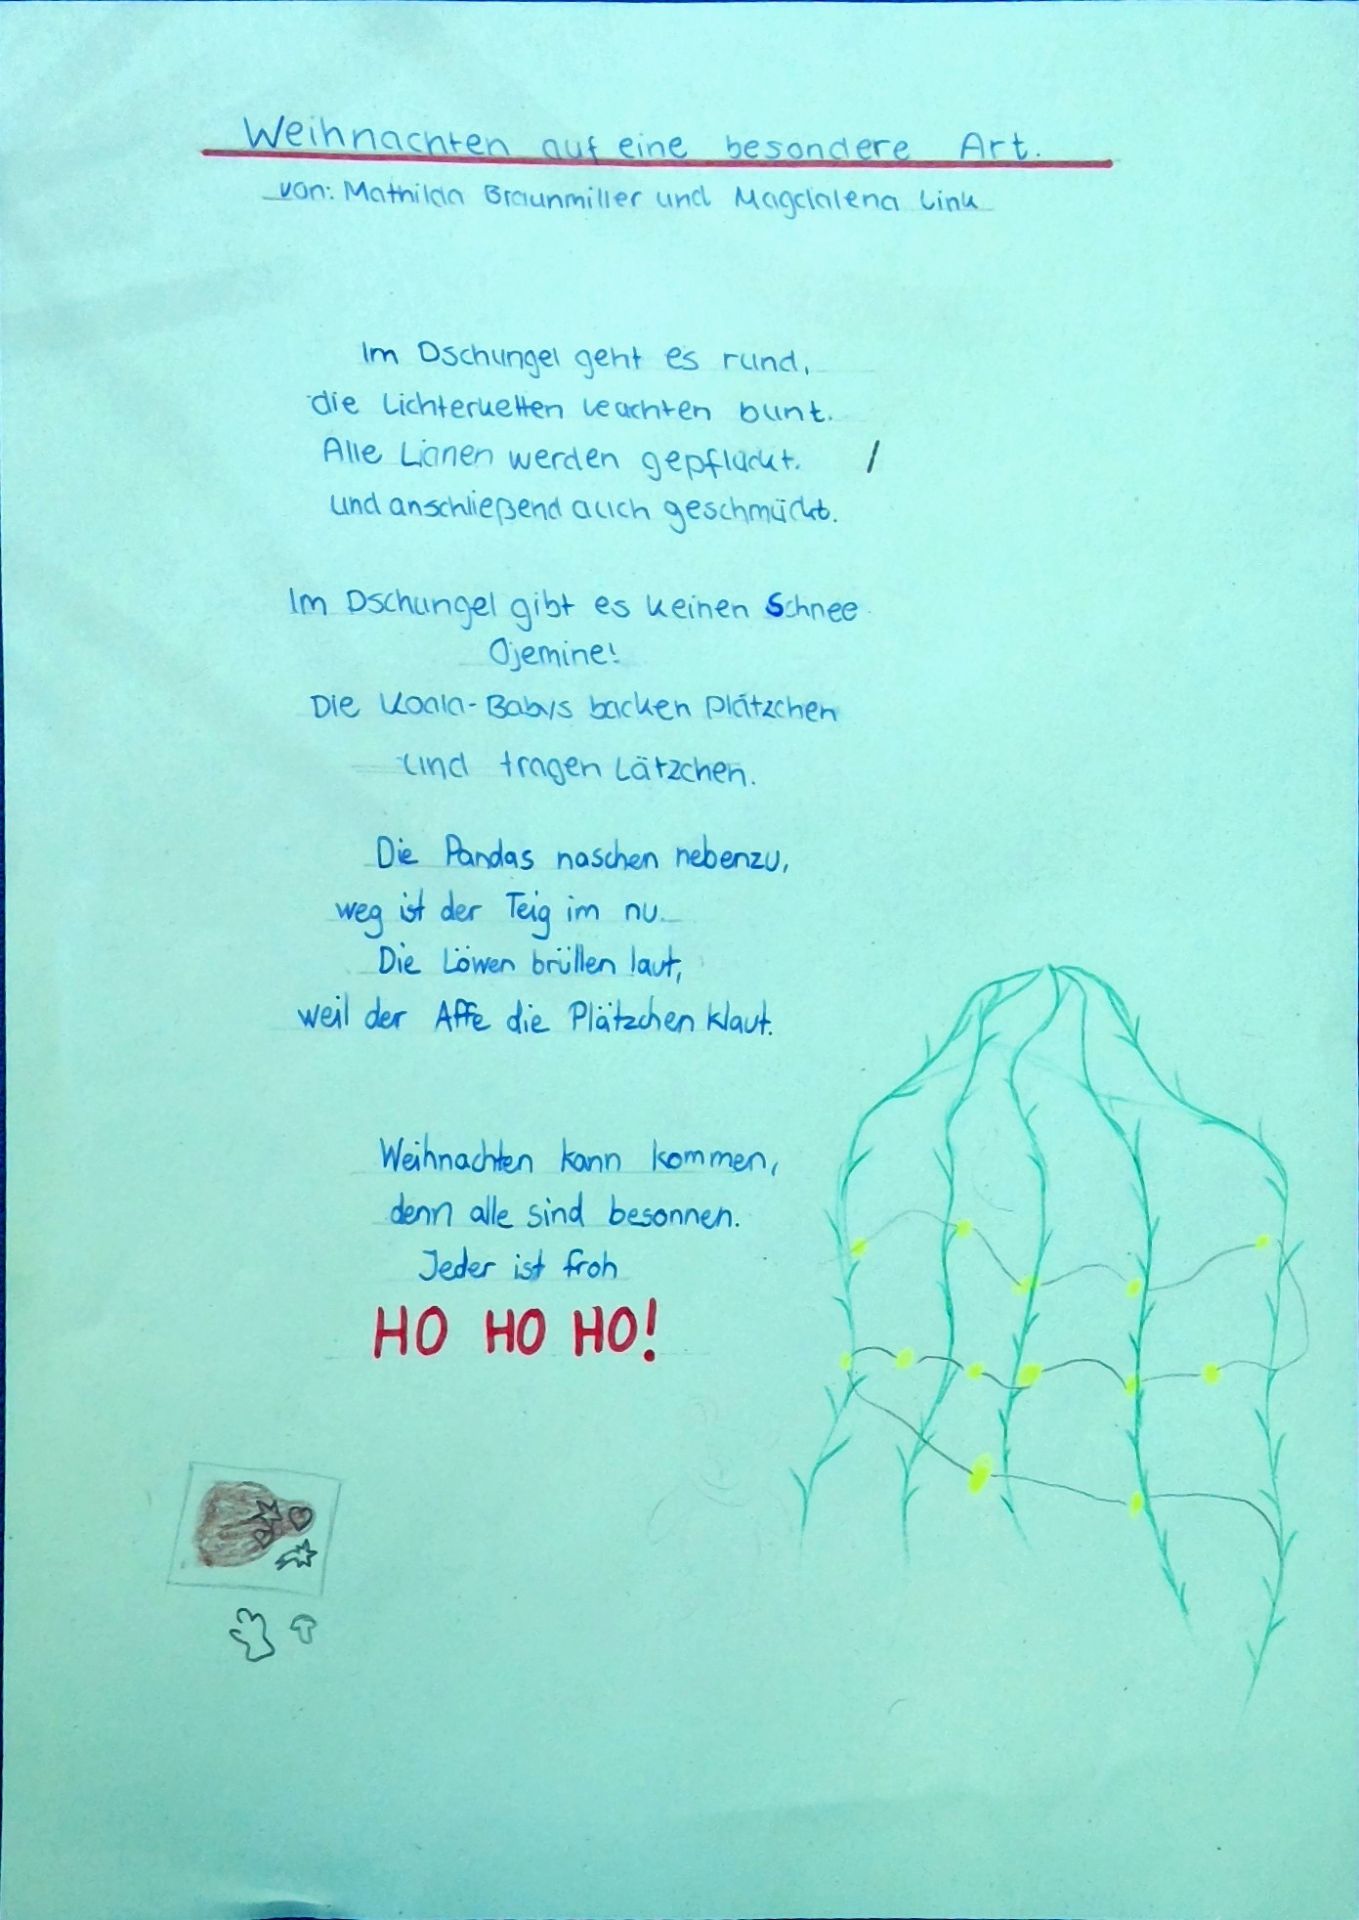 Weihnachten auf eine besondere Art.
von: Mathilda Braunmiller und Magdalena Link
Im Dschungel geht es rund,
die Lichterketten leuchten bunt.
Alle Lianen werden gepflückt.
und anschließend auch geschmückt.
Im Dschungel gibt es keinen Schnee
Ojemine!
Die Koala-Babys backen Plätzchen
und tragen Lätzchen.
Die Pandas naschen nebenzu,
weg ist der Teig im nu.
Die Löwen brüllen laut,
weil der Affe die Plätzchen klaut.
Weihnachten kann kommen,
denn alle sind besonnen.
Jeder ist froh
HO HO HO!